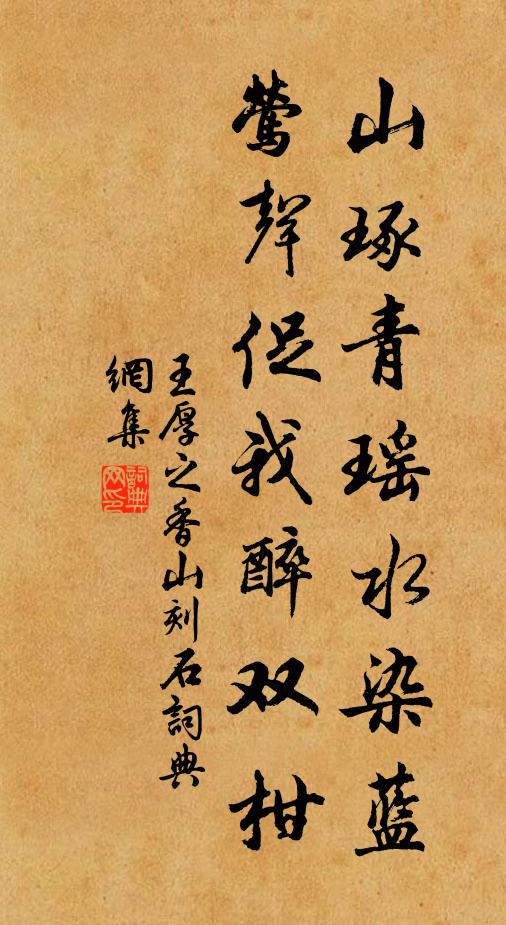 山琢青瑶水染蓝
莺声促我醉双柑
王厚之香山刻石詞典
網集
詞典网印